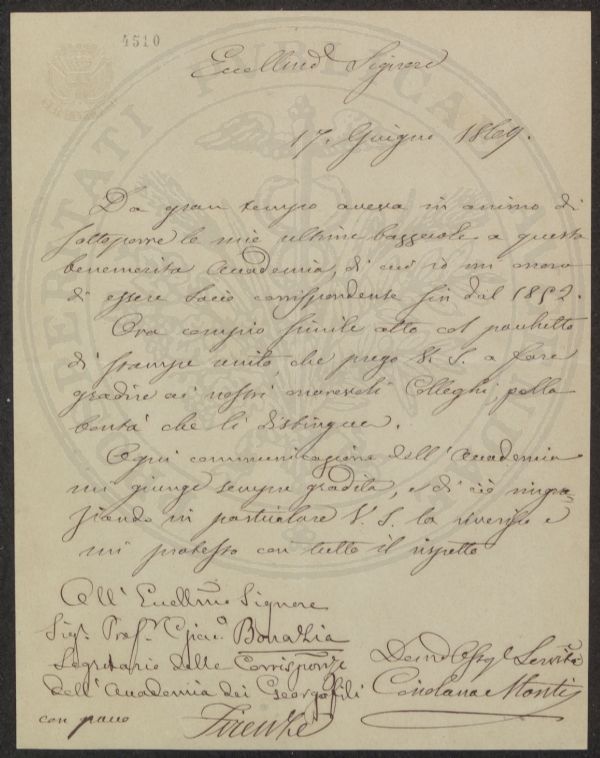 4510
Eccellmo Signore
17. Giugno 1869.
Da gran tempo aveva in animo di
sottoporre le mie ultime bazzecole a questa
benemerita Accademia, di cui io mi onoro
di essere Socio corrispondente fin dal 1852.
Ora compio simile atto col pacchetto
di stampe unito, che prego V. S. a fare
gradire ai nostri onorevoli Colleghi, colla
bontà che li distingue.
Ogni communicazione dell'Accademia
mi giunge sempre gradita, e di ciò ringra=
ziando in particolare V. S. la riverisco e
mi protesto con tutto il rispetto
All' Eccellmo Signore
Sigr. Profr. Bonathia
Segretario delle Corrisponze
dell'Accademia dei Georgofili
con pacco
Firenze
Servite
Coriolano Monti